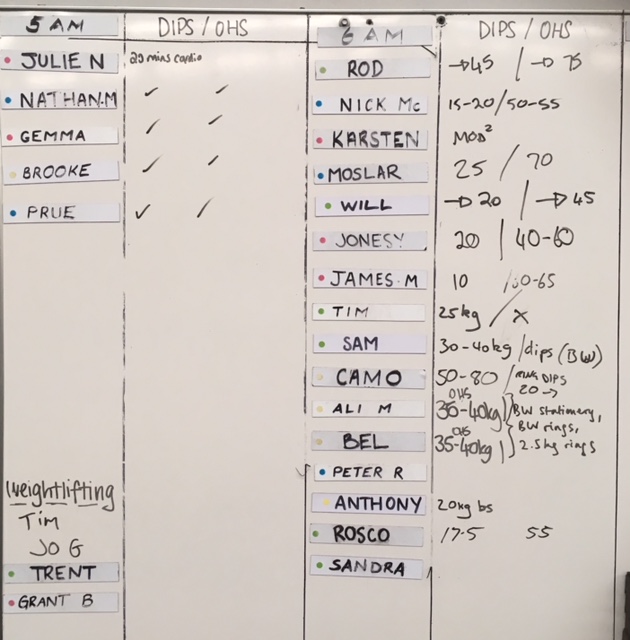 5 AM DIPS / OHS
JULIE N 20 mins cardio
NATHAN.M ✓ ✓
GEMMA ✓ ✓
BROOKE ✓ ✓
PRUE ✓ ✓
Weightlifting
TIM
JO G
TRENT
GRANT B
AM DIPS / OHS
ROD →45 / → 75
NICK Mc 15-20/50-55
KARSTEN MOD²
MOSLAR 25 / 70
WILL → 20 / → 45
JONESY 20 / 40-60
JAMES.M 10 / 0-65
TIM 25kg / X
SAM 30-40kg / dips (BW)
CAMO 50-80 / RING DIPS 20 →
ALI M OHS 35-40kg BW stationery,
BW rings,
BEL OHS 35-40kg 2.5kg rings
PETER R
ANTHONY 20kg bs
ROSCO 17.5 55
SANDRA